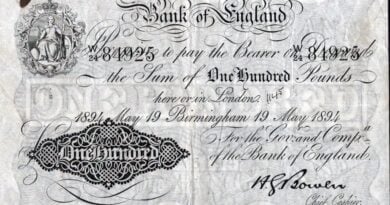 Bank of England
W/24 84925 to pay the Bearer on Demand W/24 84925
the Sum of One Hundred Pounds
here or in London.
1894 May 19 Birmingham 19 May 1894
For the Gov:r and Comp:a
of the Bank of England.
One Hundred
H G Bowen
Chief Cashier.